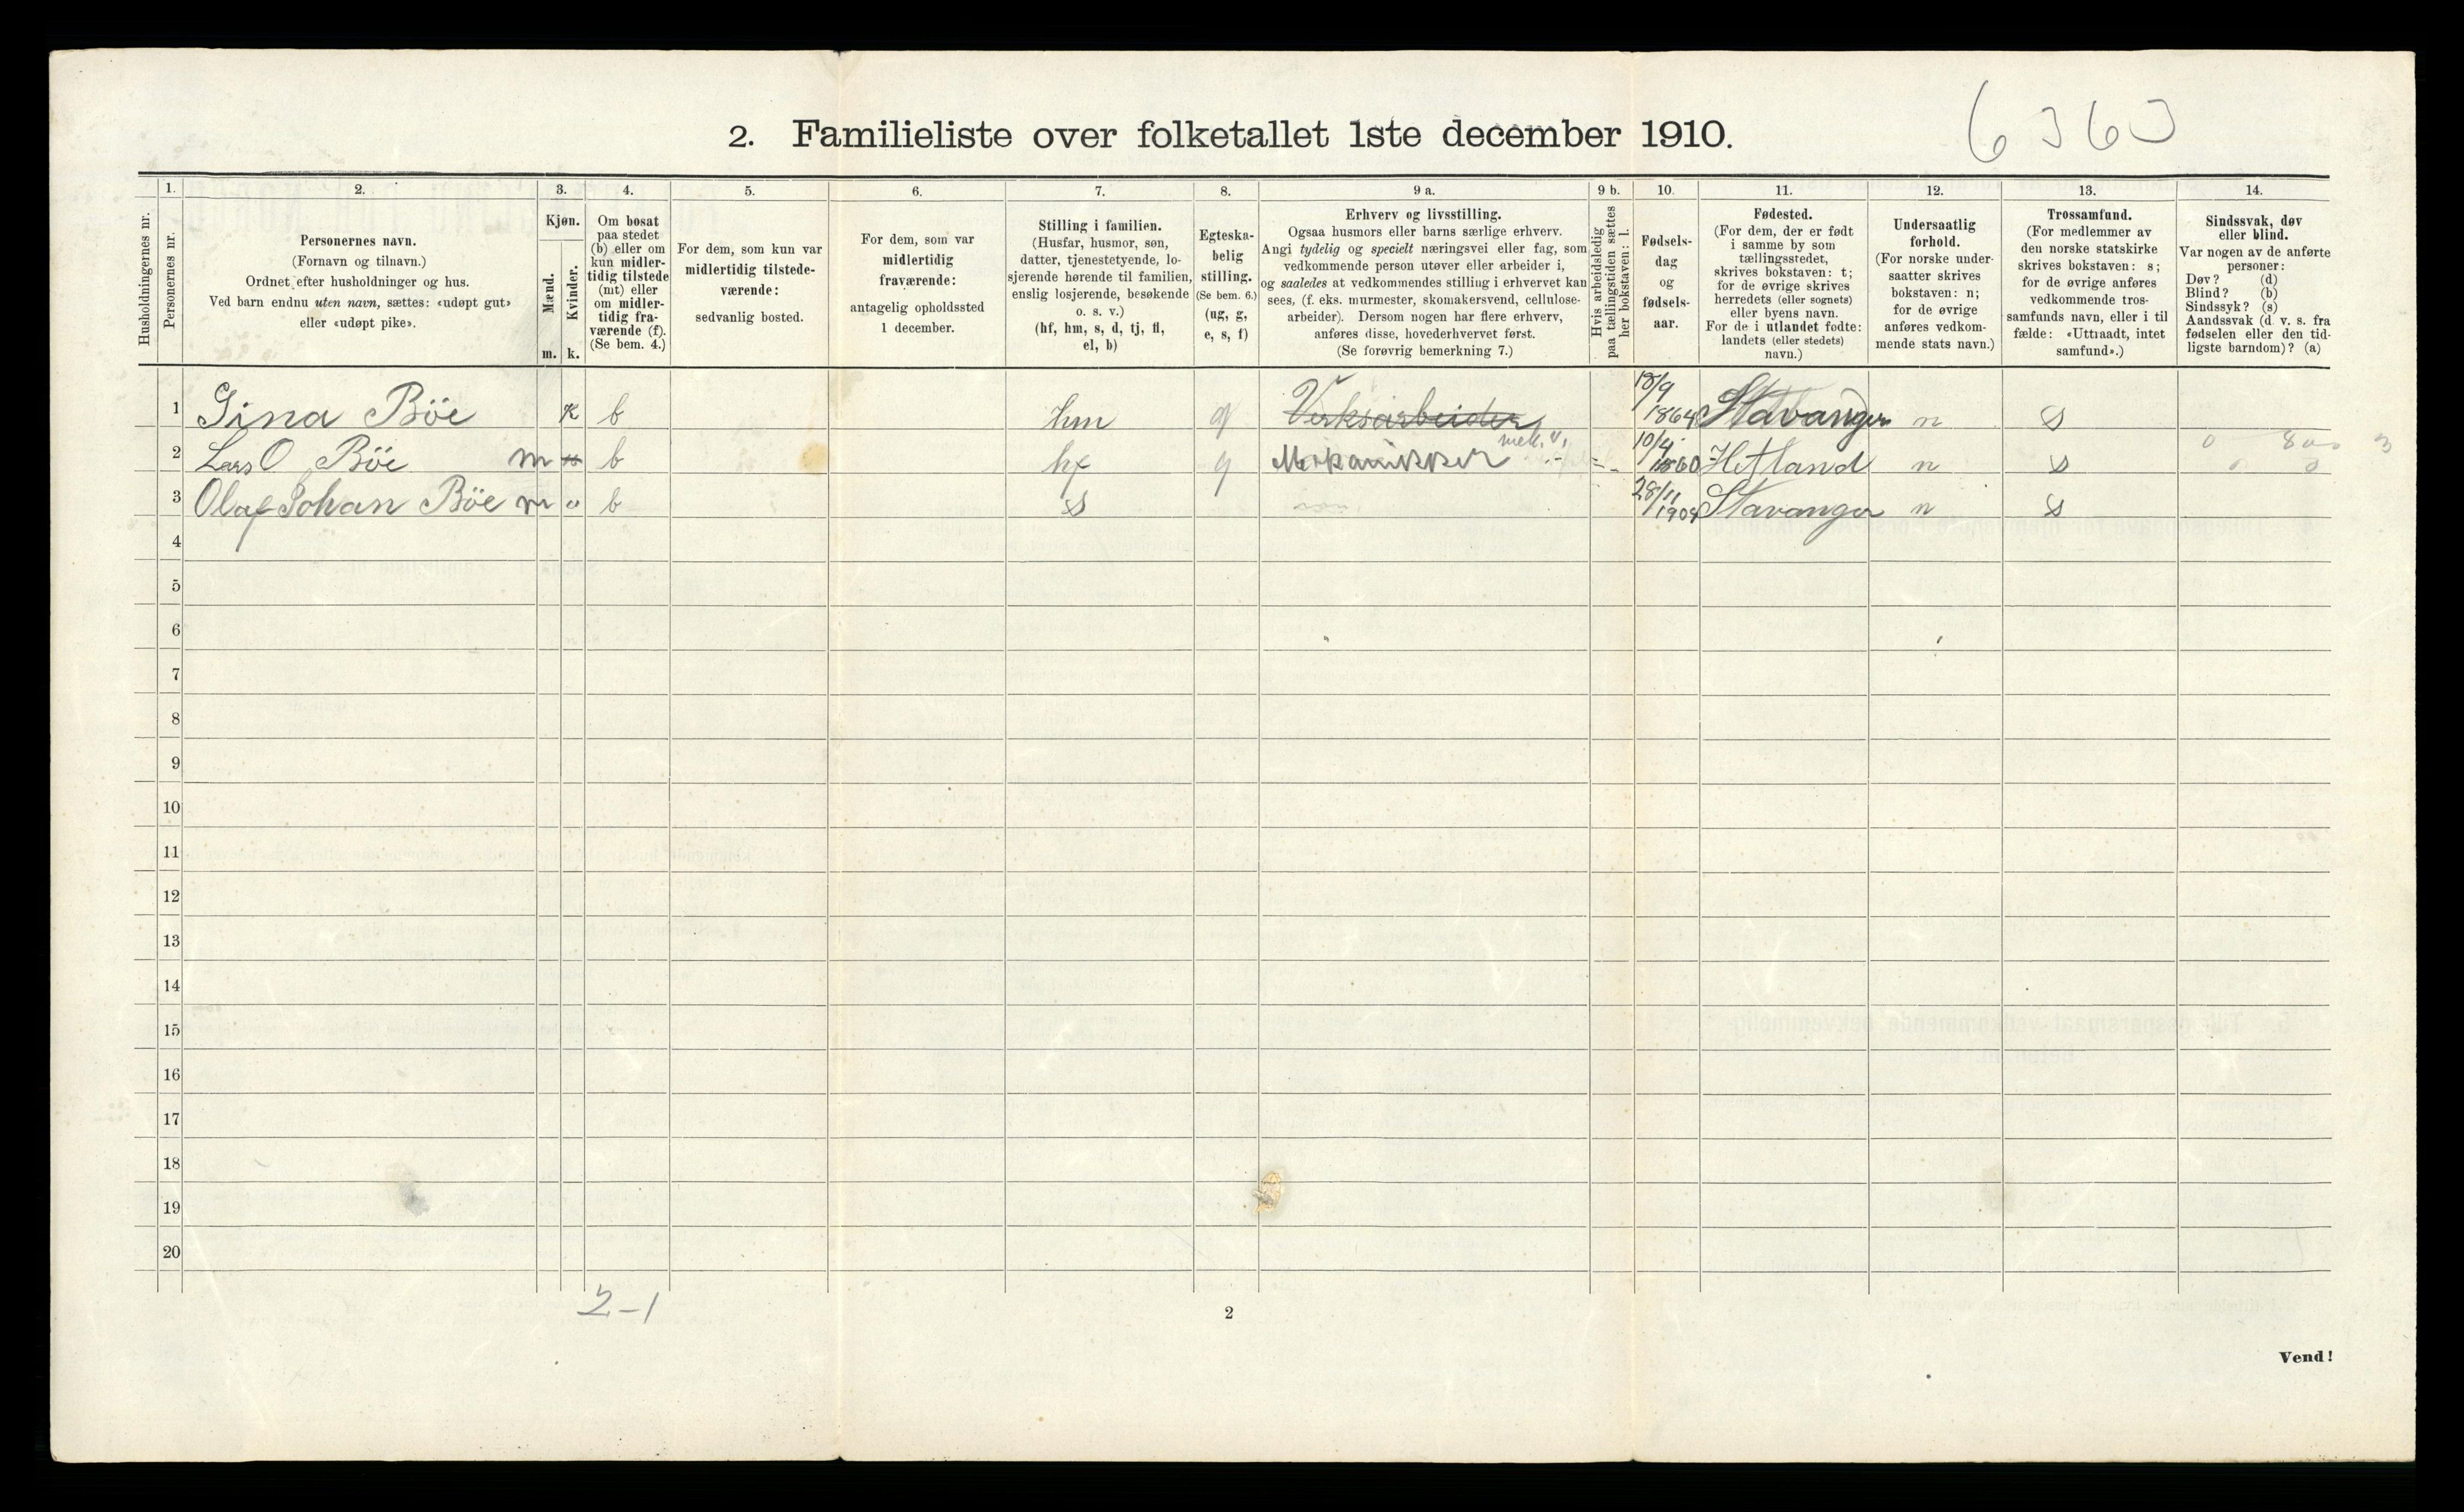 6363
2. Familieliste over folketallet 1ste december 1910.
1. 2. 3. 4. 5. 6. 7. 8. 9 a. 9 b. 10. 11. 12. 13. 14.
Husholdningernes nr.
Personernes nr.
Personernes navn.
(Fornavn og tilnavn.)
Ordnet efter husholdninger og hus.
Ved barn endnu uten navn, sættes: «udøpt gut»
eller «udøpt pike».
Kjøn.
Mænd.
m.
Kvinder.
k.
Om bosat
paa stedet
(b) eller om
kun midler-
tidig tilstede
(mt) eller
om midler-
tidig fra-
værende (f).
(Se bem. 4.)
For dem, som kun var
midlertidig tilstede-
værende:
sedvanlig bosted.
For dem, som var
midlertidig
fraværende:
antagelig opholdssted
1 december.
Stilling i familien.
(Husfar, husmor, søn,
datter, tjenestetyende, lo-
sjerende hørende til familien,
enslig losjerende, besøkende
o. s. v.)
(hf, hm, s, d, tj, fl,
el, b)
Egteska-
belig
stilling.
(Se bem. 6.)
(ug, g,
e, s, f)
Erhverv og livsstilling.
Ogsaa husmors eller barns særlige erhverv.
Angi tydelig og specielt næringsvei eller fag, som
vedkommende person utøver eller arbeider i,
og saaledes at vedkommendes stilling i erhvervet kan
sees, (f. eks. murmester, skomakersvend, cellulose-
arbeider). Dersom nogen har flere erhverv,
anføres disse, hovederhvervet først.
(Se forøvrig bemerkning 7.)
Hvis arbeidsledig
paa tællingstiden sættes
her bokstaven: l.
Fødsels-
dag
og
fødsels-
aar.
Fødested.
(For dem, der er født
i samme by som
tællingsstedet,
skrives bokstaven: t;
for de øvrige skrives
herredets (eller sognets)
eller byens navn.
For de i utlandet fødte:
landets (eller stedets)
navn.)
Undersaatlig
forhold.
(For norske under-
saatter skrives
bokstaven: n;
for de øvrige
anføres vedkom-
mende stats navn.)
Trossamfund.
(For medlemmer av
den norske statskirke
skrives bokstaven: s;
for de øvrige anføres
vedkommende tros-
samfunds navn, eller i til
fælde: «Uttraadt, intet
samfund».)
Sindssvak, døv
eller blind.
Var nogen av de anførte
personer:
Døv? (d)
Blind? (b)
Sindssyk? (s)
Aandssvak (d. v. s. fra
fødselen eller den tid-
ligste barndom)? (a)
1 Gina Böe k b hm g Verksarbeider 18/9 1864 Stavanger n s
2 Lars O Böe m b hf g Mekanikker mek. v. 10/4 1860 Hetland n s
3 Olaf Johan Böe m b s 28/11 1904 Stavanger n s
4
5
6
7
8
9
10
11
12
13
14
15
16
17
18
19
20
2-1
2
Vend!